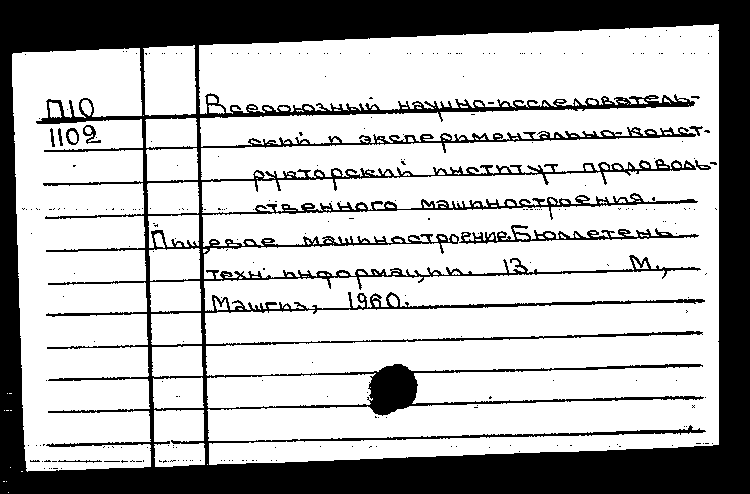 П10 Всесоюзный научно-исследователь-
1102 ский и экспериментально-конст-
рукторский институт продоволь-
ственного машиностроения.
Пищевое машиностроение. Бюллетень
техн. информации. 13. М.,
Машгиз, 1960.